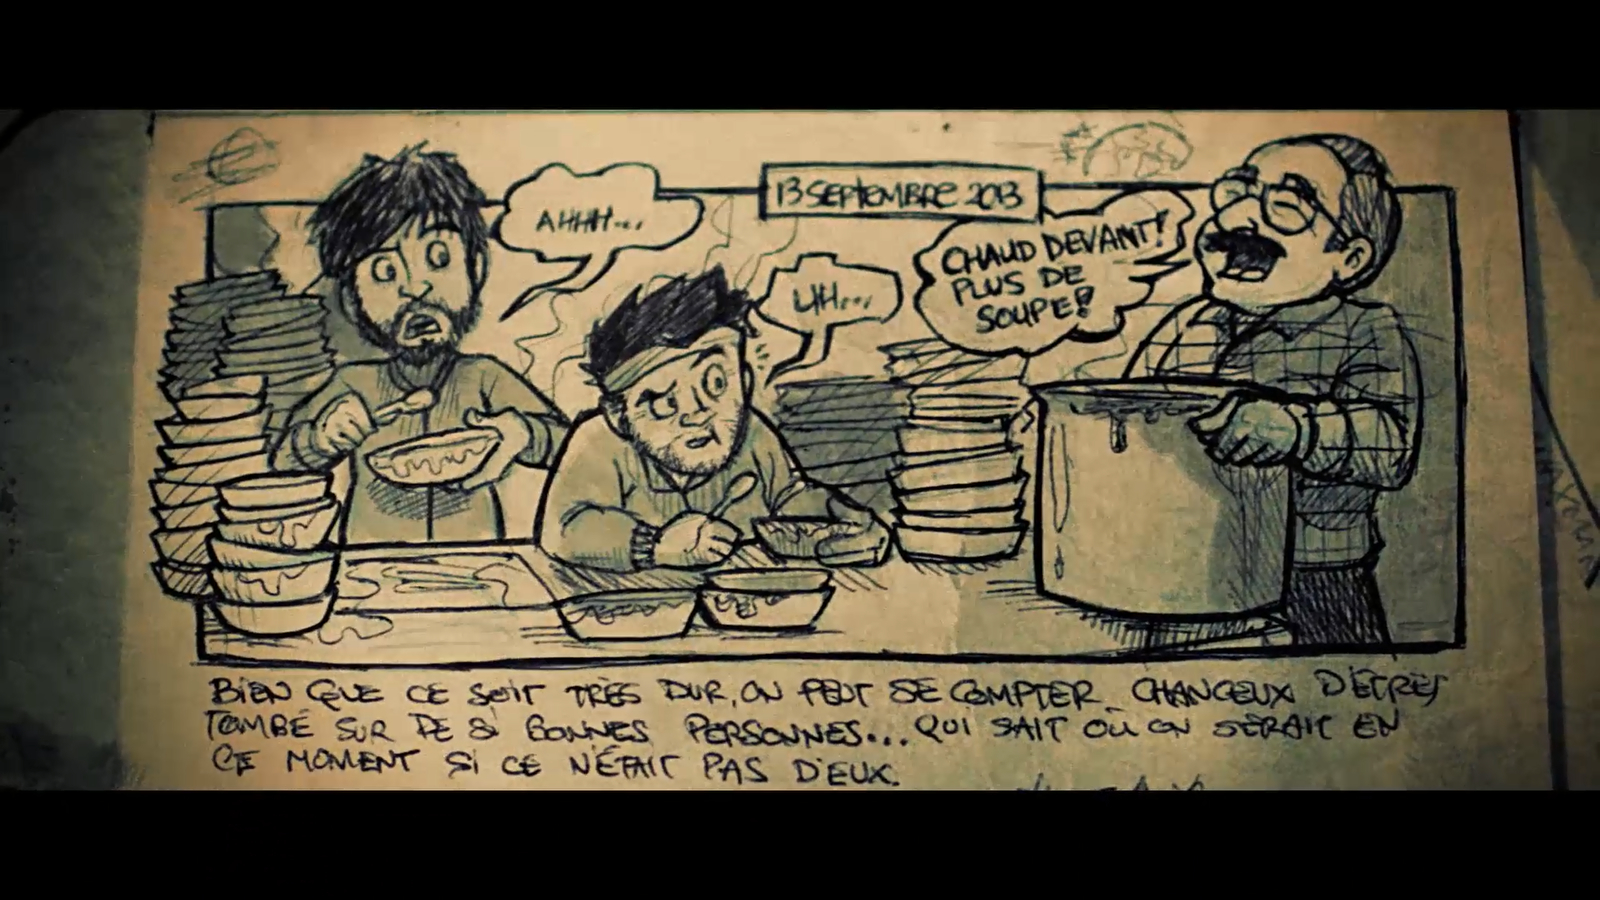 13 SEPTEMBRE 2013
AHHH...
UH...
CHAUD DEVANT!
PLUS DE
SOUPE!
BIEN QUE CE SOIT TRÈS DUR, ON PEUT SE COMPTER CHANCEUX D'ÊTRES
TOMBÉ SUR DE SI BONNES PERSONNES... QUI SAIT OÙ ON SERAIT EN
CE MOMENT SI CE N'ÉTAIT PAS D'EUX.